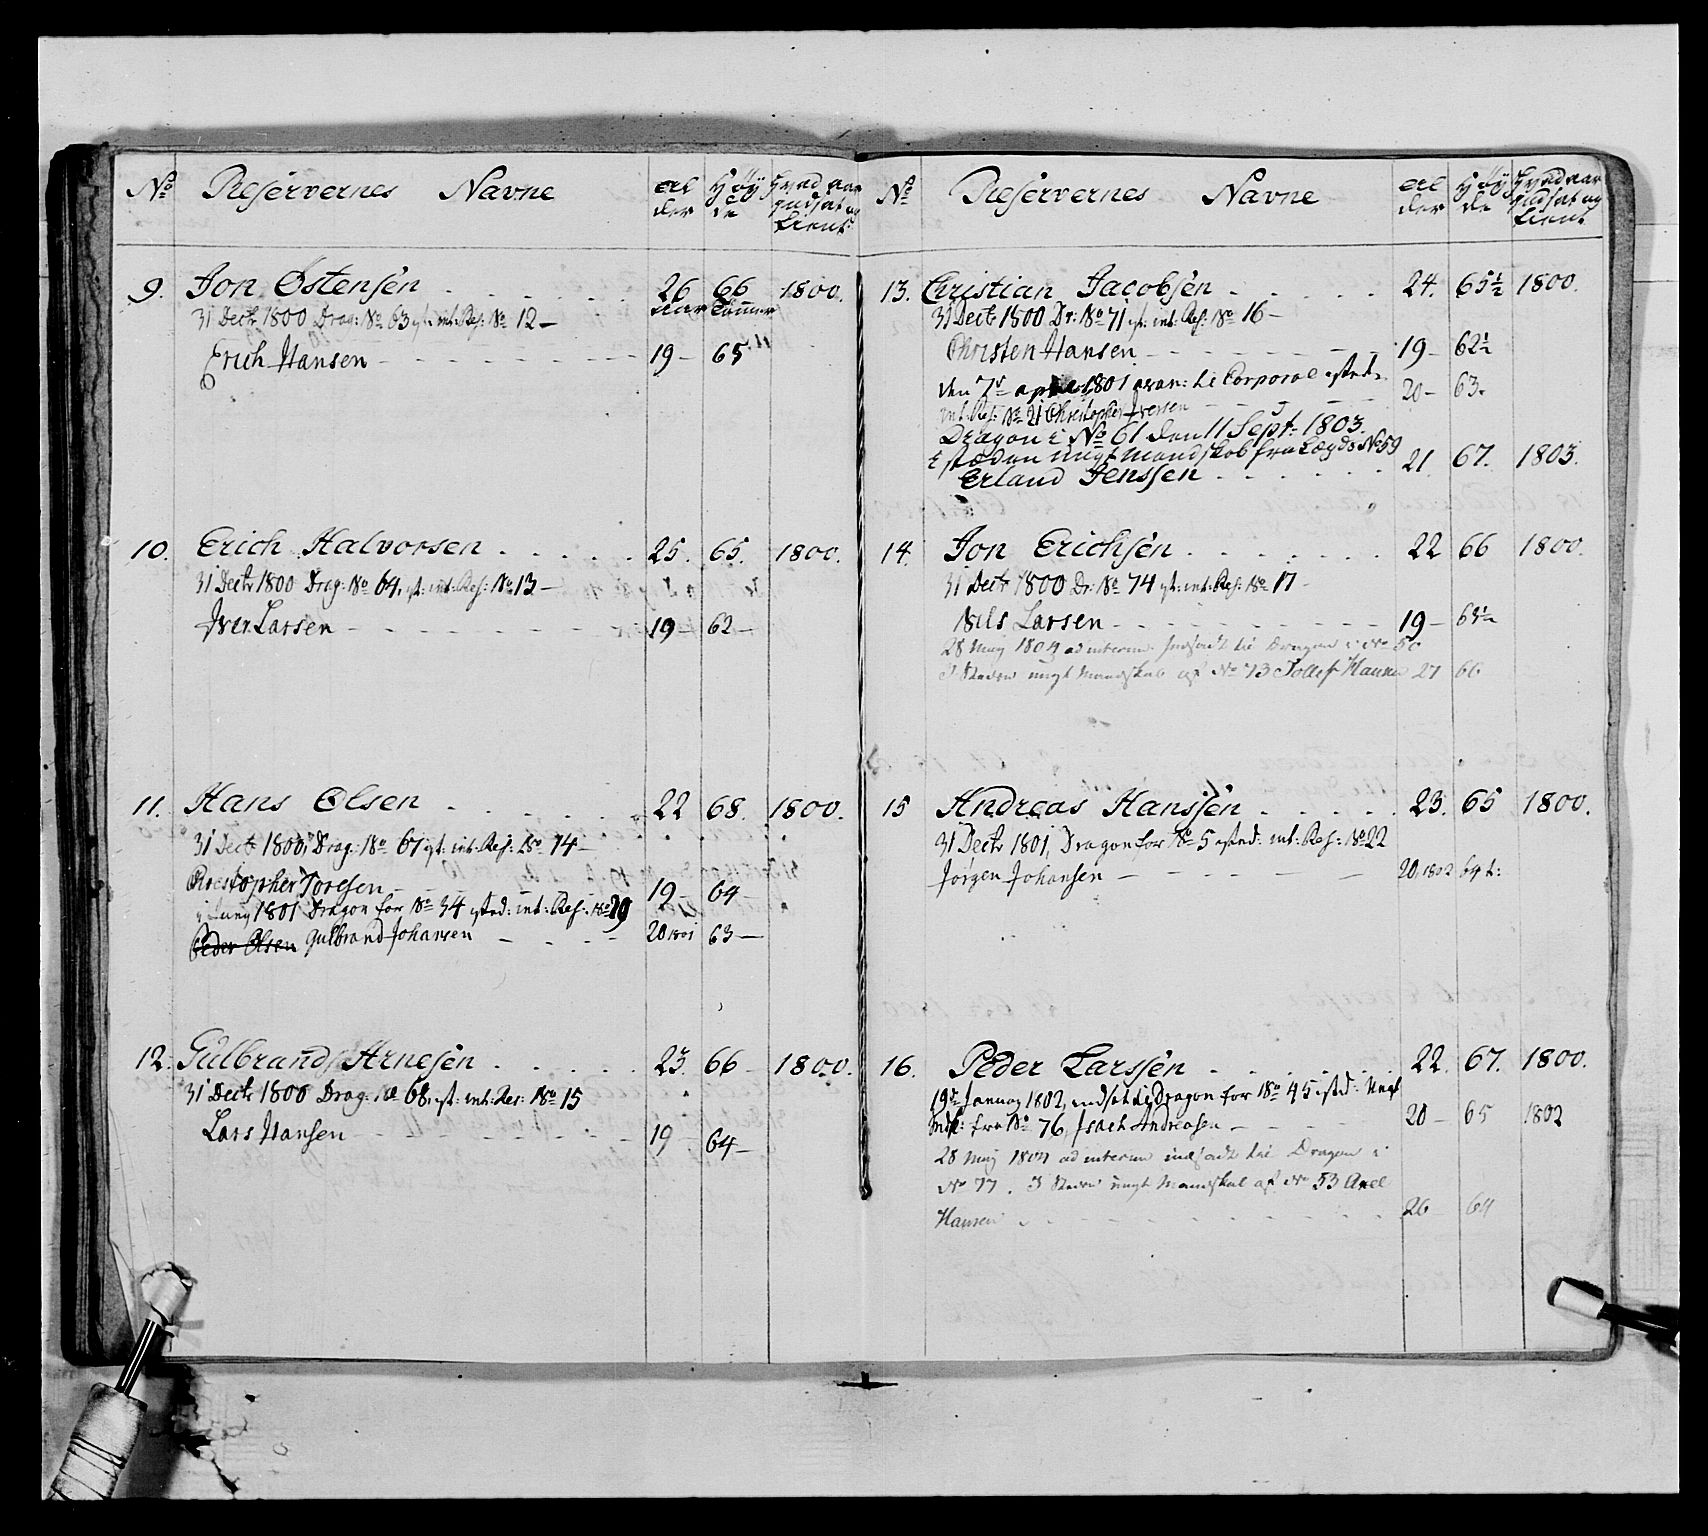 No Reservernes Navne al der Høy de Hvad aar indsat og tient
9. Jon Østensen 26 66 1800.
aar tommer
31 Decbr 1800 Drag: No 63 ist: int: Res: No 12 —
Erich Hansen 19 — 65
10. Erich Halvorsen 25. 65. 1800.
31 Decbr 1800 Drag: No 64, ist: int: Res: No 13 —
Iver Larsen 19 — 62 —
11. Hans Olsen 22 68. 1800.
31 Decbr 1800, Drag: No 67 ist: int: Res: No 14 —
Christopher Toresen 19 — 64 —
1801 Dragon for No 34 isted: int: Res: No 29
Peder Olsen Gulbrand Johansen 20 1801 63 —
12. Gulbrand Arnesen 23. 66 1800.
31 Decbr 1800 Drag: No 68, ist: int: Res: No 15
Lars Hansen 19 — 64 —
No Reservernes Navne al der Høy de Hvad aar indsat og tient
13. Christian Jacobsen 24. 65½ 1800.
31 Decbr 1800 Dr: No 71 ist: int: Res: No 16 —
Christen Hansen 19 — 62½
den 7de 1801 avan: til Corporal isted
int: Res: No 21 Christopher Iversen 20 — 63.
Dragon i No 61 den 11 Sept: 1803.
i stæden ungt Mandskob fra Lægds No 59
Erland Jenssen 21 67. 1803.
14. Jon Erichsen 22 66 1800.
31 Decbr 1800 Dr: No 74 ist: int: Res: No 17 —
Nils Larsen 19 —
28 May 1804 ad interim indsadt til Dragon i No 50
I Steden ungt Mandskab af No 73 Tollef Hansen 27 66
15 Andreas Hanssen 23. 65 1800.
31 Decbr 1801, Dragon for No 5 isted: int: Res: No 22
Jørgen Johansen 20, 1802 64 t:
16. Peder Larssen 22. 67. 1800.
19de Januay 1802, indsat til Dragon for No 45 isted:
Mdsk: fra No 76, Isach Andreasen 20 — 65 1802
28 May 1804 ad interim indsadt til Dragon i
No 77. I Steden ungt Mandskab af No 53 Axel
Hansen 26 64